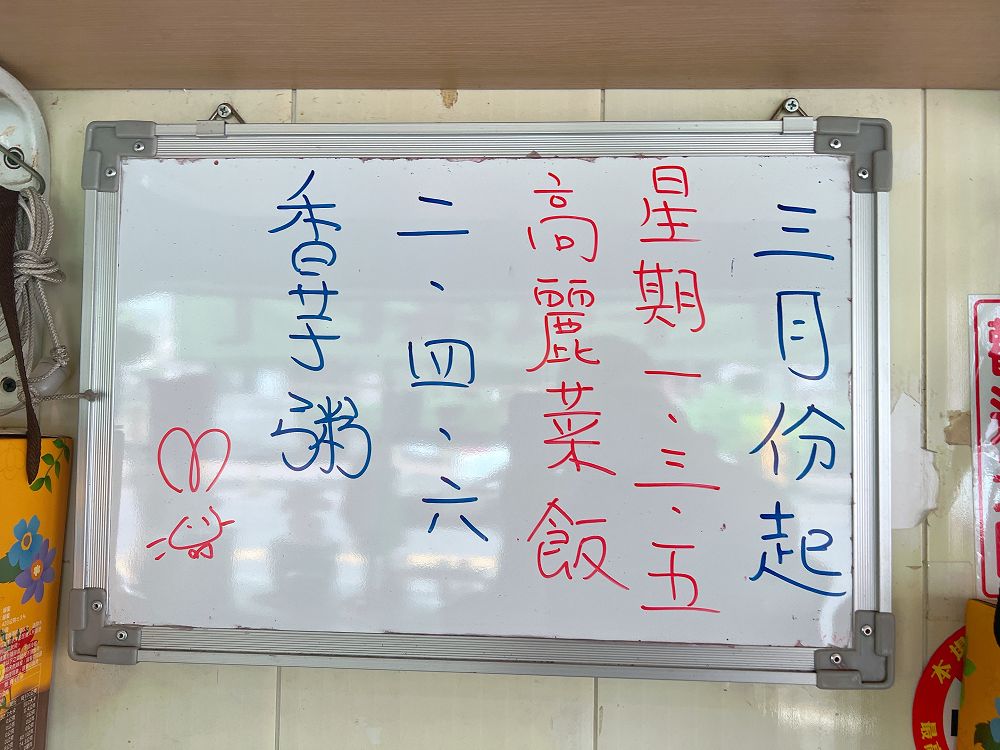 三月份起
星期一、三、五
高麗菜飯
二、四、六
香芋粥
本
最